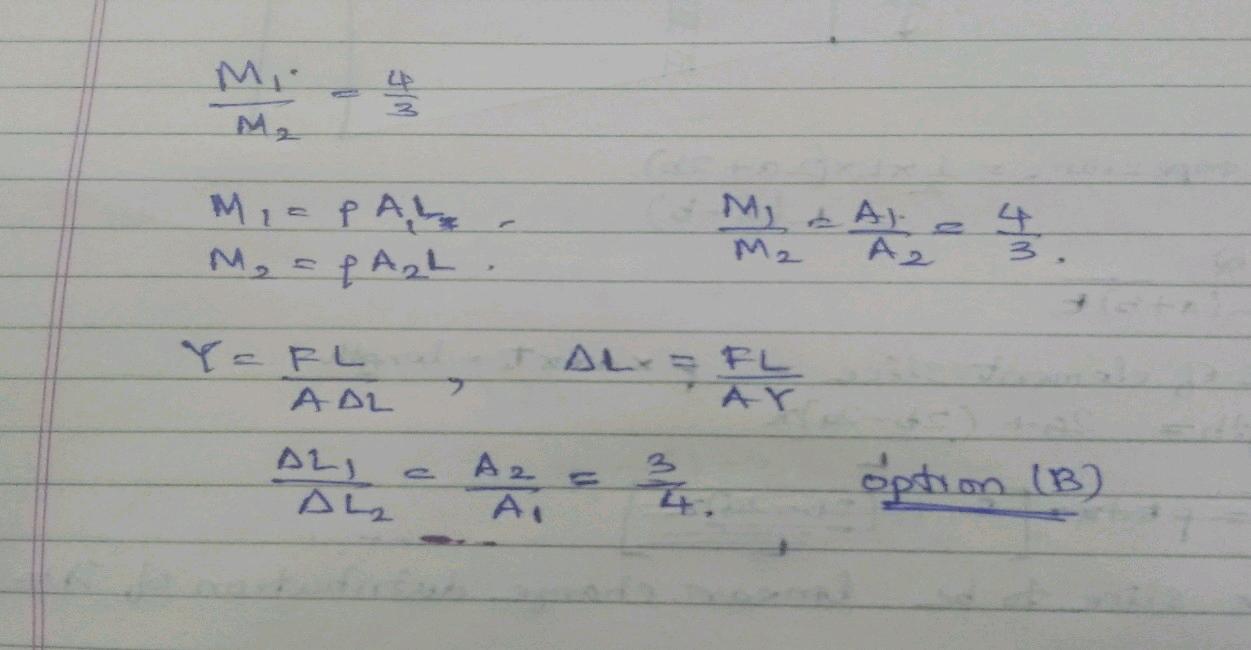 M₁/M₂ = 4/3
M₁ = ρA₁L. M₁/M₂ = A₁/A₂ = 4/3.
M₂ = ρA₂L.
Y = FL/AΔL, ΔL = FL/AY
ΔL₁/ΔL₂ = A₂/A₁ = 3/4. option (B)